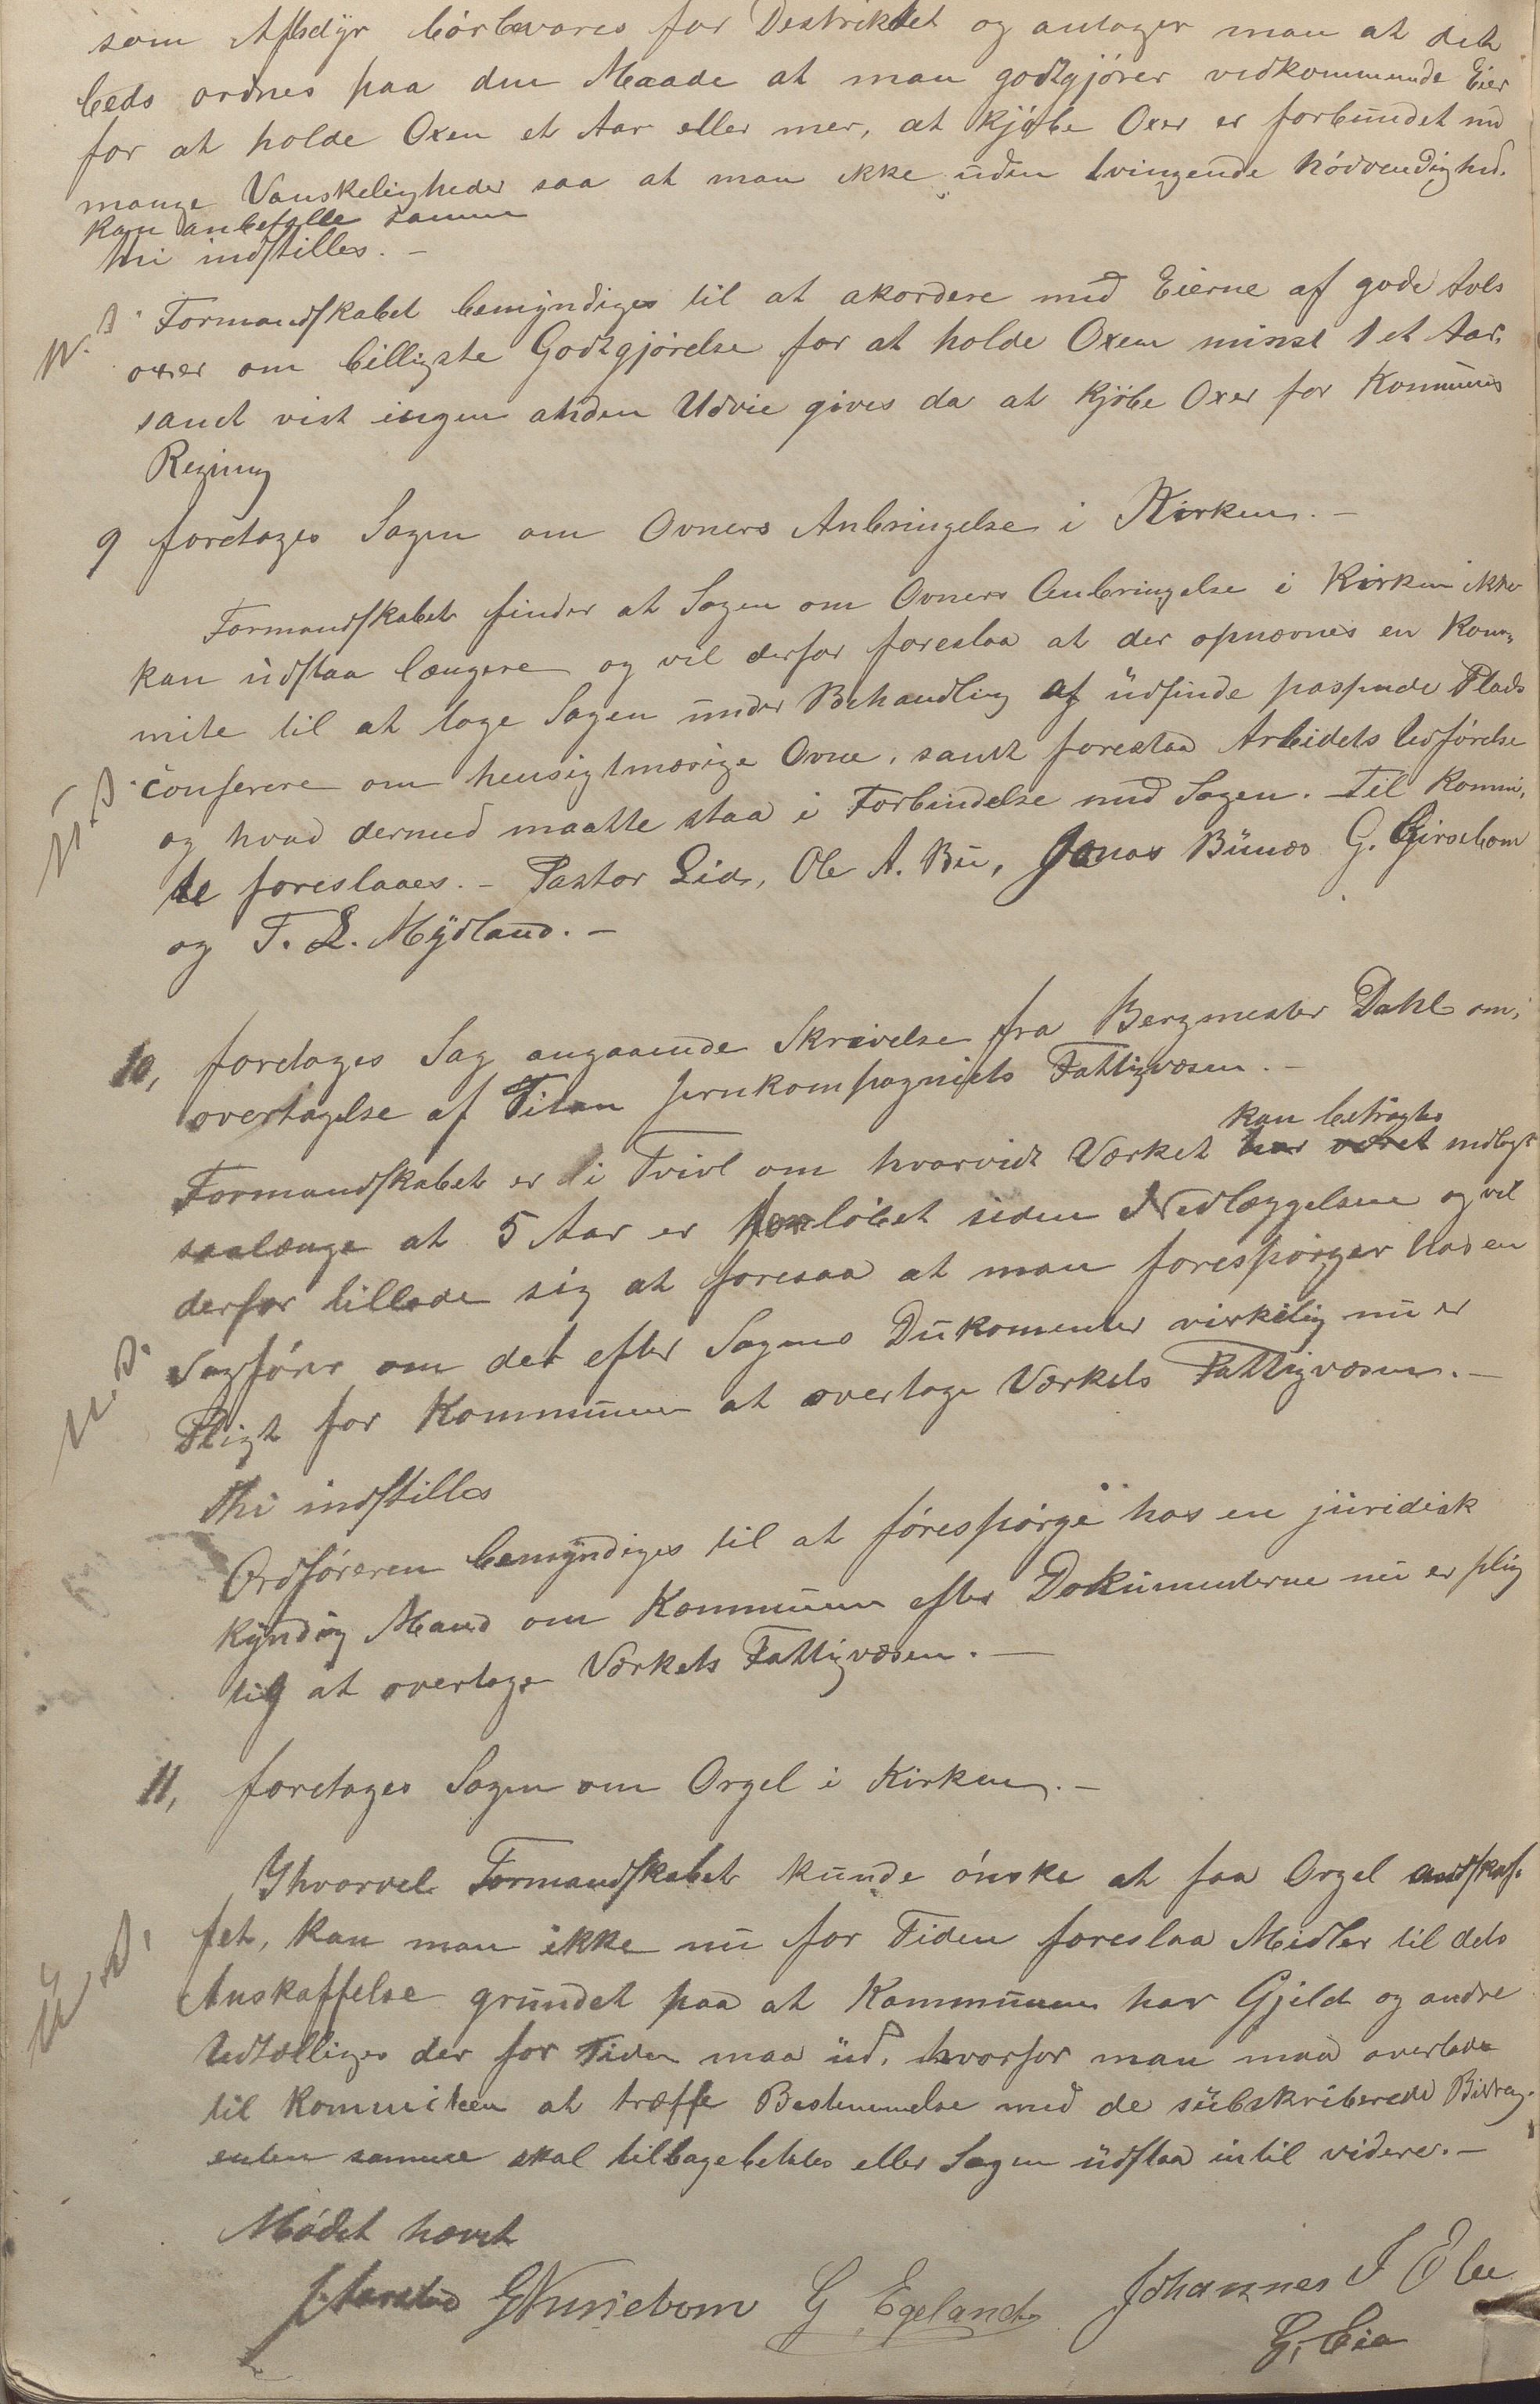 som Afledyr börbevares for Destriktet og antager man at det
beds ordnes paa den Maade at man godtgjörer vedkommende Eier
for at holde Oxen et Aar eller mer, at kjöbe Oxer er forbundet med
mange Vanskeligheder saa at man ikke uden tvingende Nödvendighed.
kan anbefalle samme
thi indstilles. -
Formandskabet bemyndiges til at akordere med Eierne af gode Avls
oxer om billigste Godtgjörelse for at holde Oxen minst 1 et Aar,
samt vist ingen anden Udvei gives da at kjöbe Oxer for Kommunes
Regning
9 foretages Sagen om Ovners Anbringelse i Kirken. -
Formandskabet finder at Sagen om Ovners Anbringelse i Kirken ikke
kan udstaa længere og vil derfor foreslaa at der opnævnes en Kom-
mite til at tage Sagen under Behandling af udfinde passende Plads
conferere om hensigtmæsige Ovne, samt forestaa Arbeidets Udförelse
og hvad dermed maatte staa i Forbindelse med Sagen. Til Kommi,
te foreslaaes. - Pastor Lid, Ole A. Bu, Jonas Bunes G. Girsebom
og T. L. Mydland. -
10, foretages Sag angaaende Skrivelse fra Bergmester Dahl om,
overtagelse af Titan Jernkompagniets Fattigvæsen. -
kan betragtes
Formandskabet er i Tvivl om hvorvidt Værket har været nedlagt
saalænge at 5 Aar er forlöbet siden Nedlæggelsen og vil
derfor tillade sig at foresaa at man forespörger hos en
Sagförer om det efter Sagens Dukomenter virkelig nu er
Pligt for Kommunen at overtage Værkets Fattigvæsen. -
Thi indstilles
Ordföreren bemyndiges til at förespörge hos en juridisk
kyndig Mand om Kommunen efter Dokumenterne nu er plig
tig at overtage Værkets Fattigvæsen. -
11, foretages Sagen om Orgel i Kirken. -
Ihvorvel Formandskabet kunde önske at faa Orgel andskaf-
fet, kan man ikke nu for Tiden foreslaa Midler til dets
Anskaffelse grundet paa at Kommunen har Gjeld og andre
Udtælliger der for Tiden maa ud, hvorfor man maa overlade
til Kommiteen at træffe Bestemmelse med de subskriberede Bidrag.
enten samme skal tilbagebetales eller Sagen udstaa intil videre. -
Mödet hævet
G Kursebom G Egeland Johannes I Eie
G. Eia